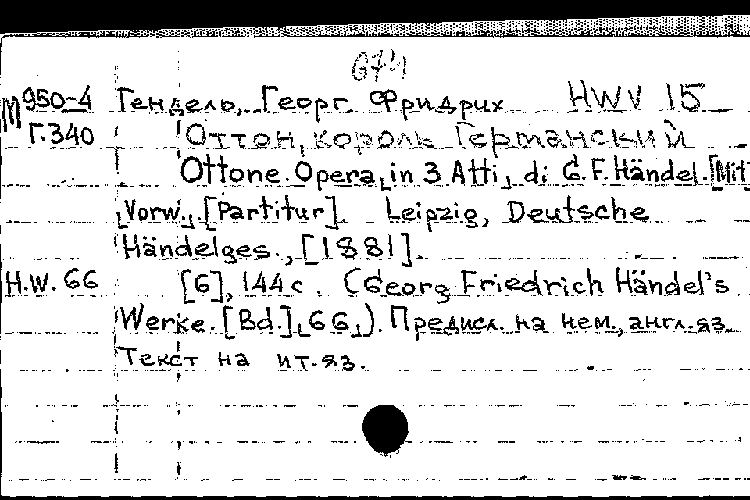 М 950-4 Гендель, Георг Фридрих HWV 15
Г.340 Оттон, король Германский
Ottone. Opera, in 3 Atti, di G.F. Händel. [Mit
Vorw.]. [Partitur]. Leipzig, Deutsche
Händelges., [1881].
H.W. 66 [6], 144 с. (Georg Friedrich Händel's
Werke. [Bd.] 66). Предисл. на нем., англ. яз.
Текст на ит. яз.